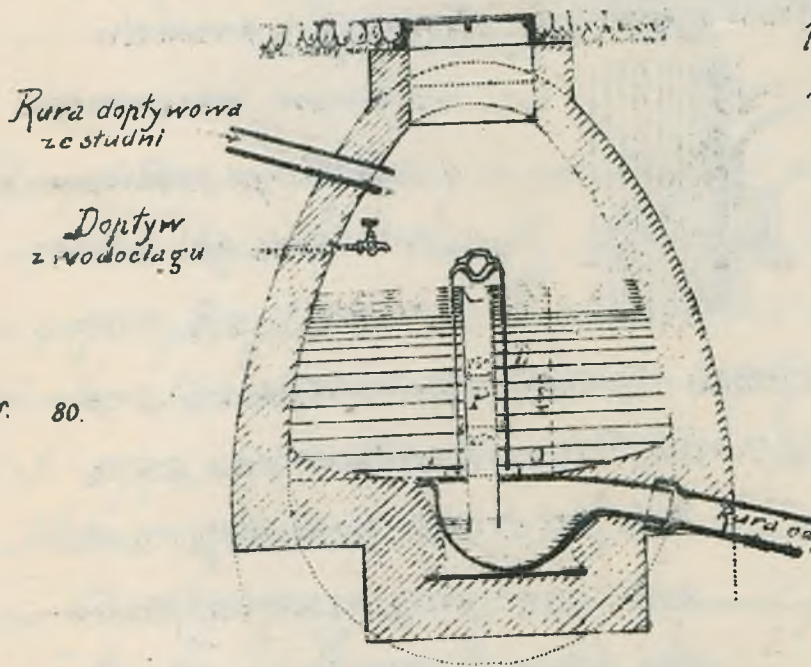 Rura dopływowa
ze studni
Dopływ
z wodociągu
80.
Rura